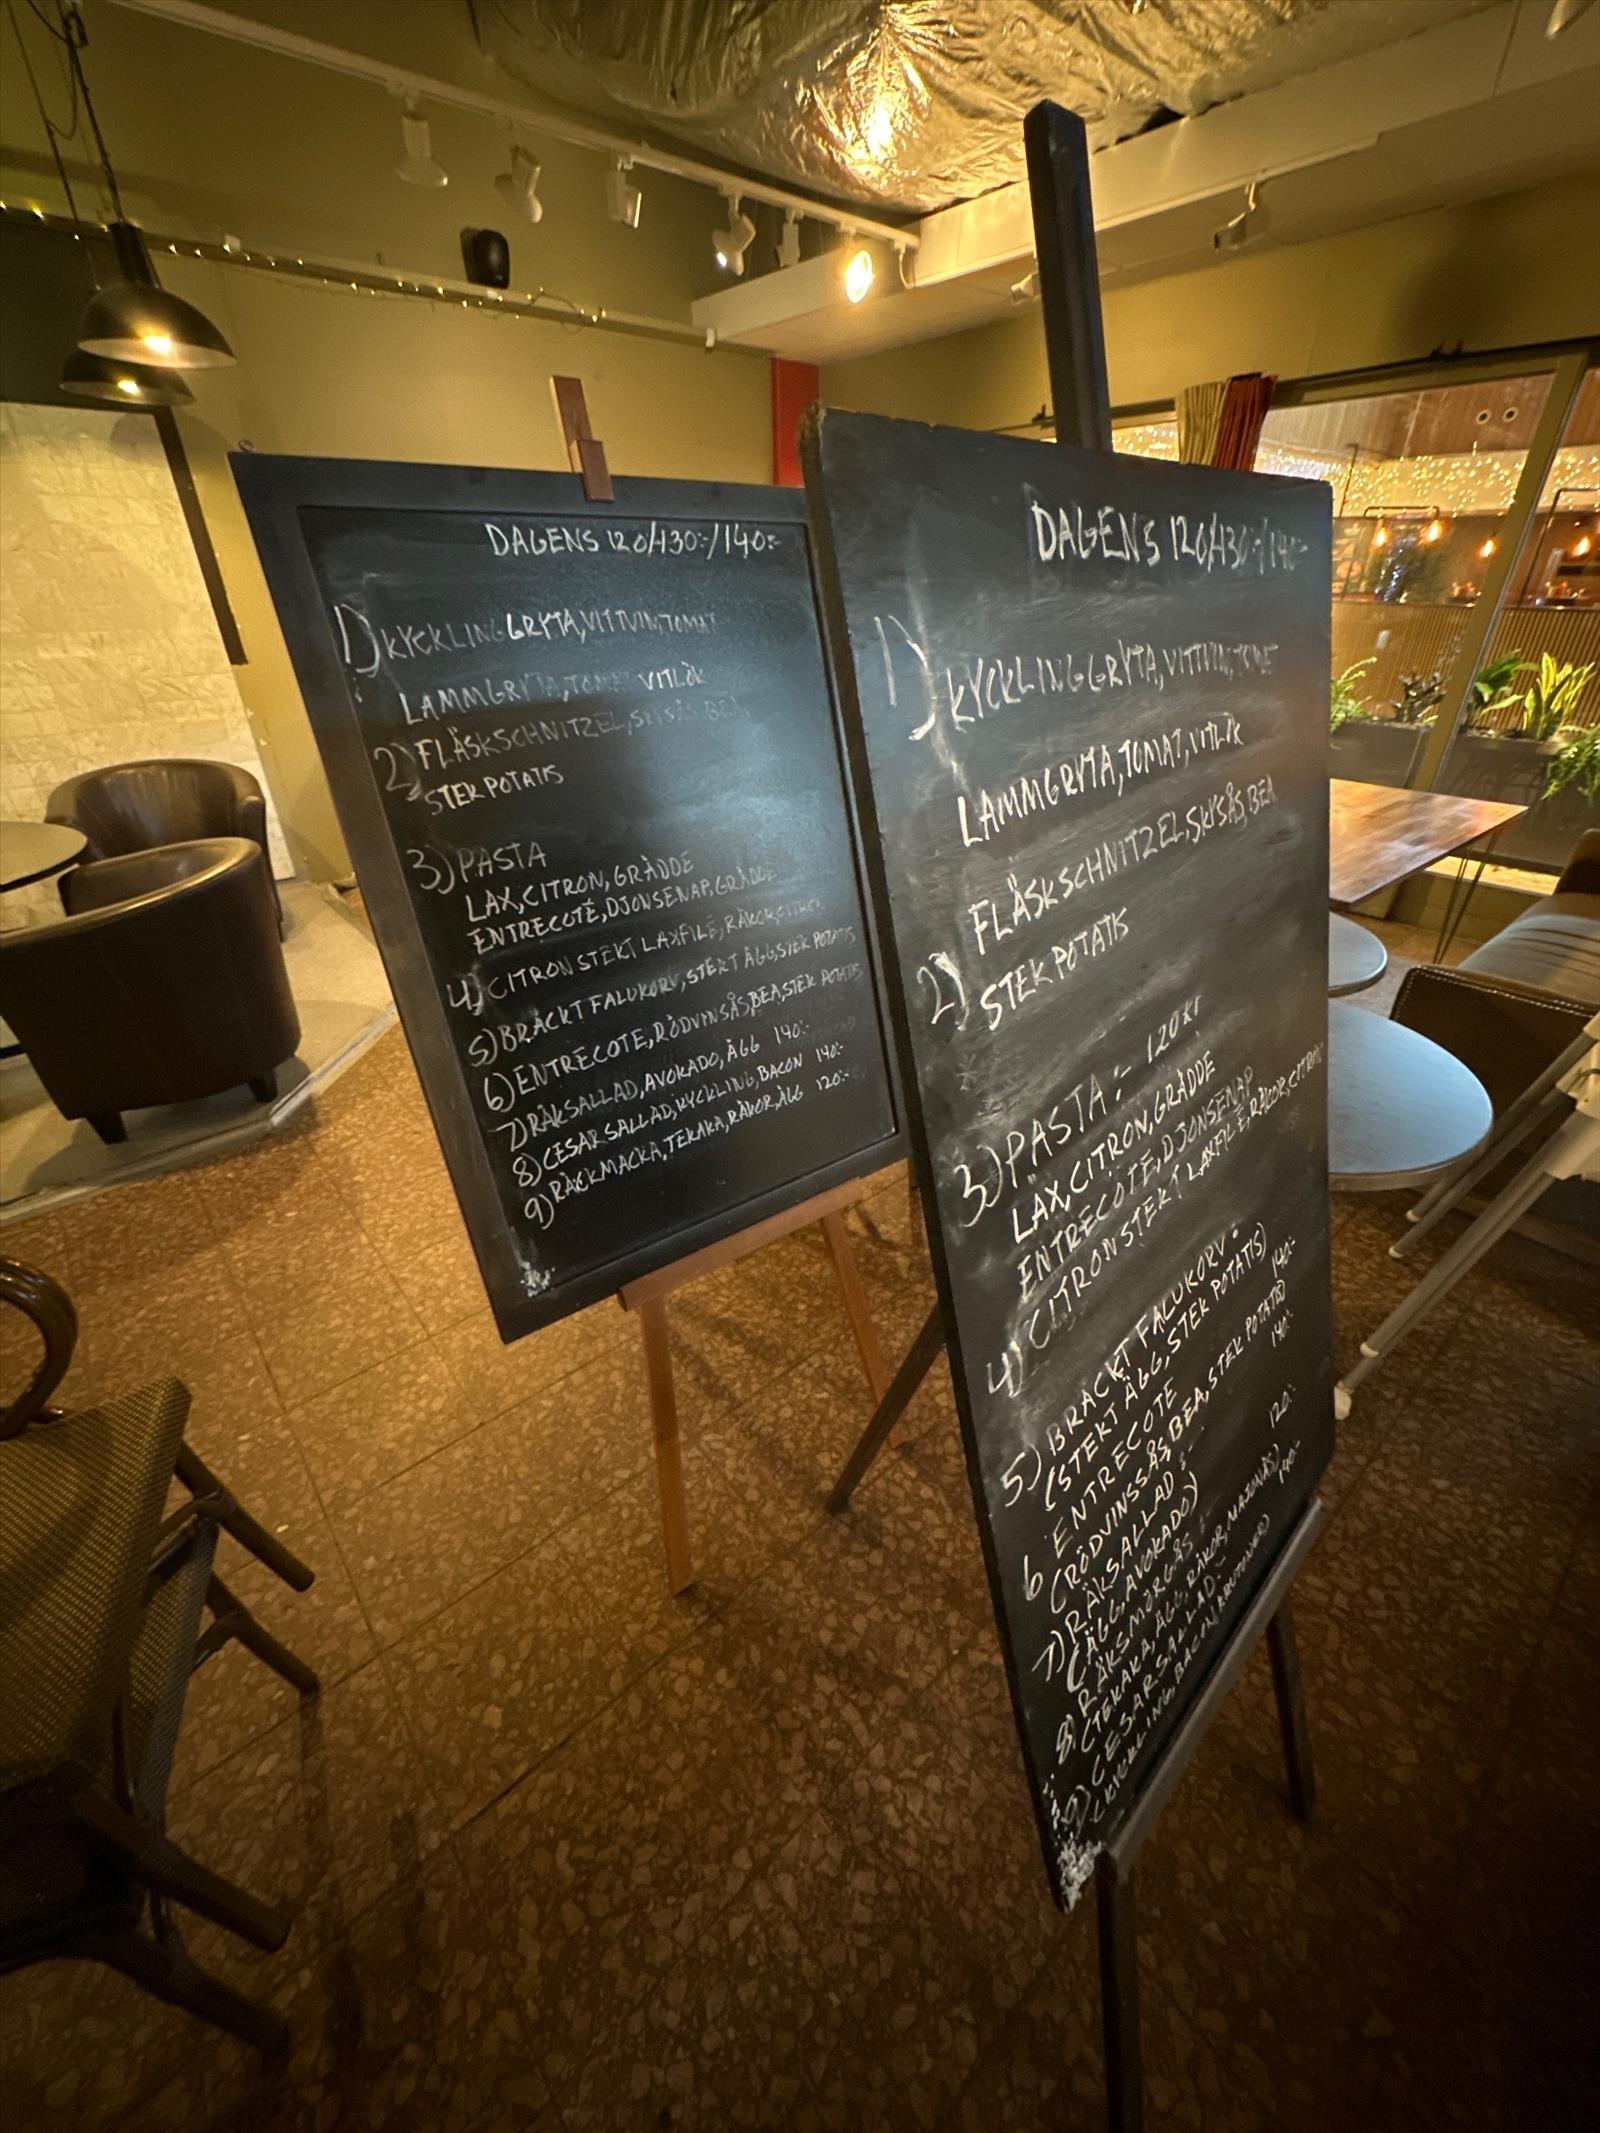 DAGENS 120/130:-/140:-
1) KYCKLINGGRYTA, VITTVIN, TOMAT
LAMMGRYTA, TOMAT VITLÖK
2) FLÄSKSCHNITZEL, SKYSÅS BEA,
STEK POTATIS
3) PASTA
LAX, CITRON, GRÄDDE
ENTRECOTÉ, DJONSENAP, GRÄDDE
4) CITRON STEKT LAXFILÉ, RÄKOR, CITRON
5) BRÄCKT FALUKORV, STEKT ÄGG, STEK POTATIS
6) ENTRECOTE, RÖDVINSÅS, BEA, STEK POTATIS
7) RÄKSALLAD, AVOKADO, ÄGG 140:-
8) CESAR SALLAD, KYCKLING, BACON 140:-
9) RÄCKMACKA, TEKAKA, RÄKOR, ÄGG 120:-
DAGENS 120/130:-/140:-
1) KYCKLINGGRYTA, VITTVIN,
LAMMGRYTA, TOMAT, VITLÖK
2) FLÄSKSCHNITZEL, SKYSÅS, BEA
STEK POTATIS
3) PASTA:- 120 kr
LAX, CITRON, GRÄDDE
ENTRECOTE, DJONSENAP
4) CITRON STEKT LAXFILÉ, RÄKOR, CITRON
5) BRÄCKT FALUKORV:
(STEKT ÄGG, STEK POTATIS)
6 ENTRECOTE 140:-
(RÖDVINSSÅS, BEA, STEK POTATIS)
7) RÄKSALLAD: 140:-
(ÄGG, AVOKADO)
8) RÄKSMÖRGÅS: 120:-
(TEKAKA, ÄGG, RÄKOR, MAJONÄS)
9) CESARSALLAD: 140:-
(KYCKLING, BACON, KRUTONGER)